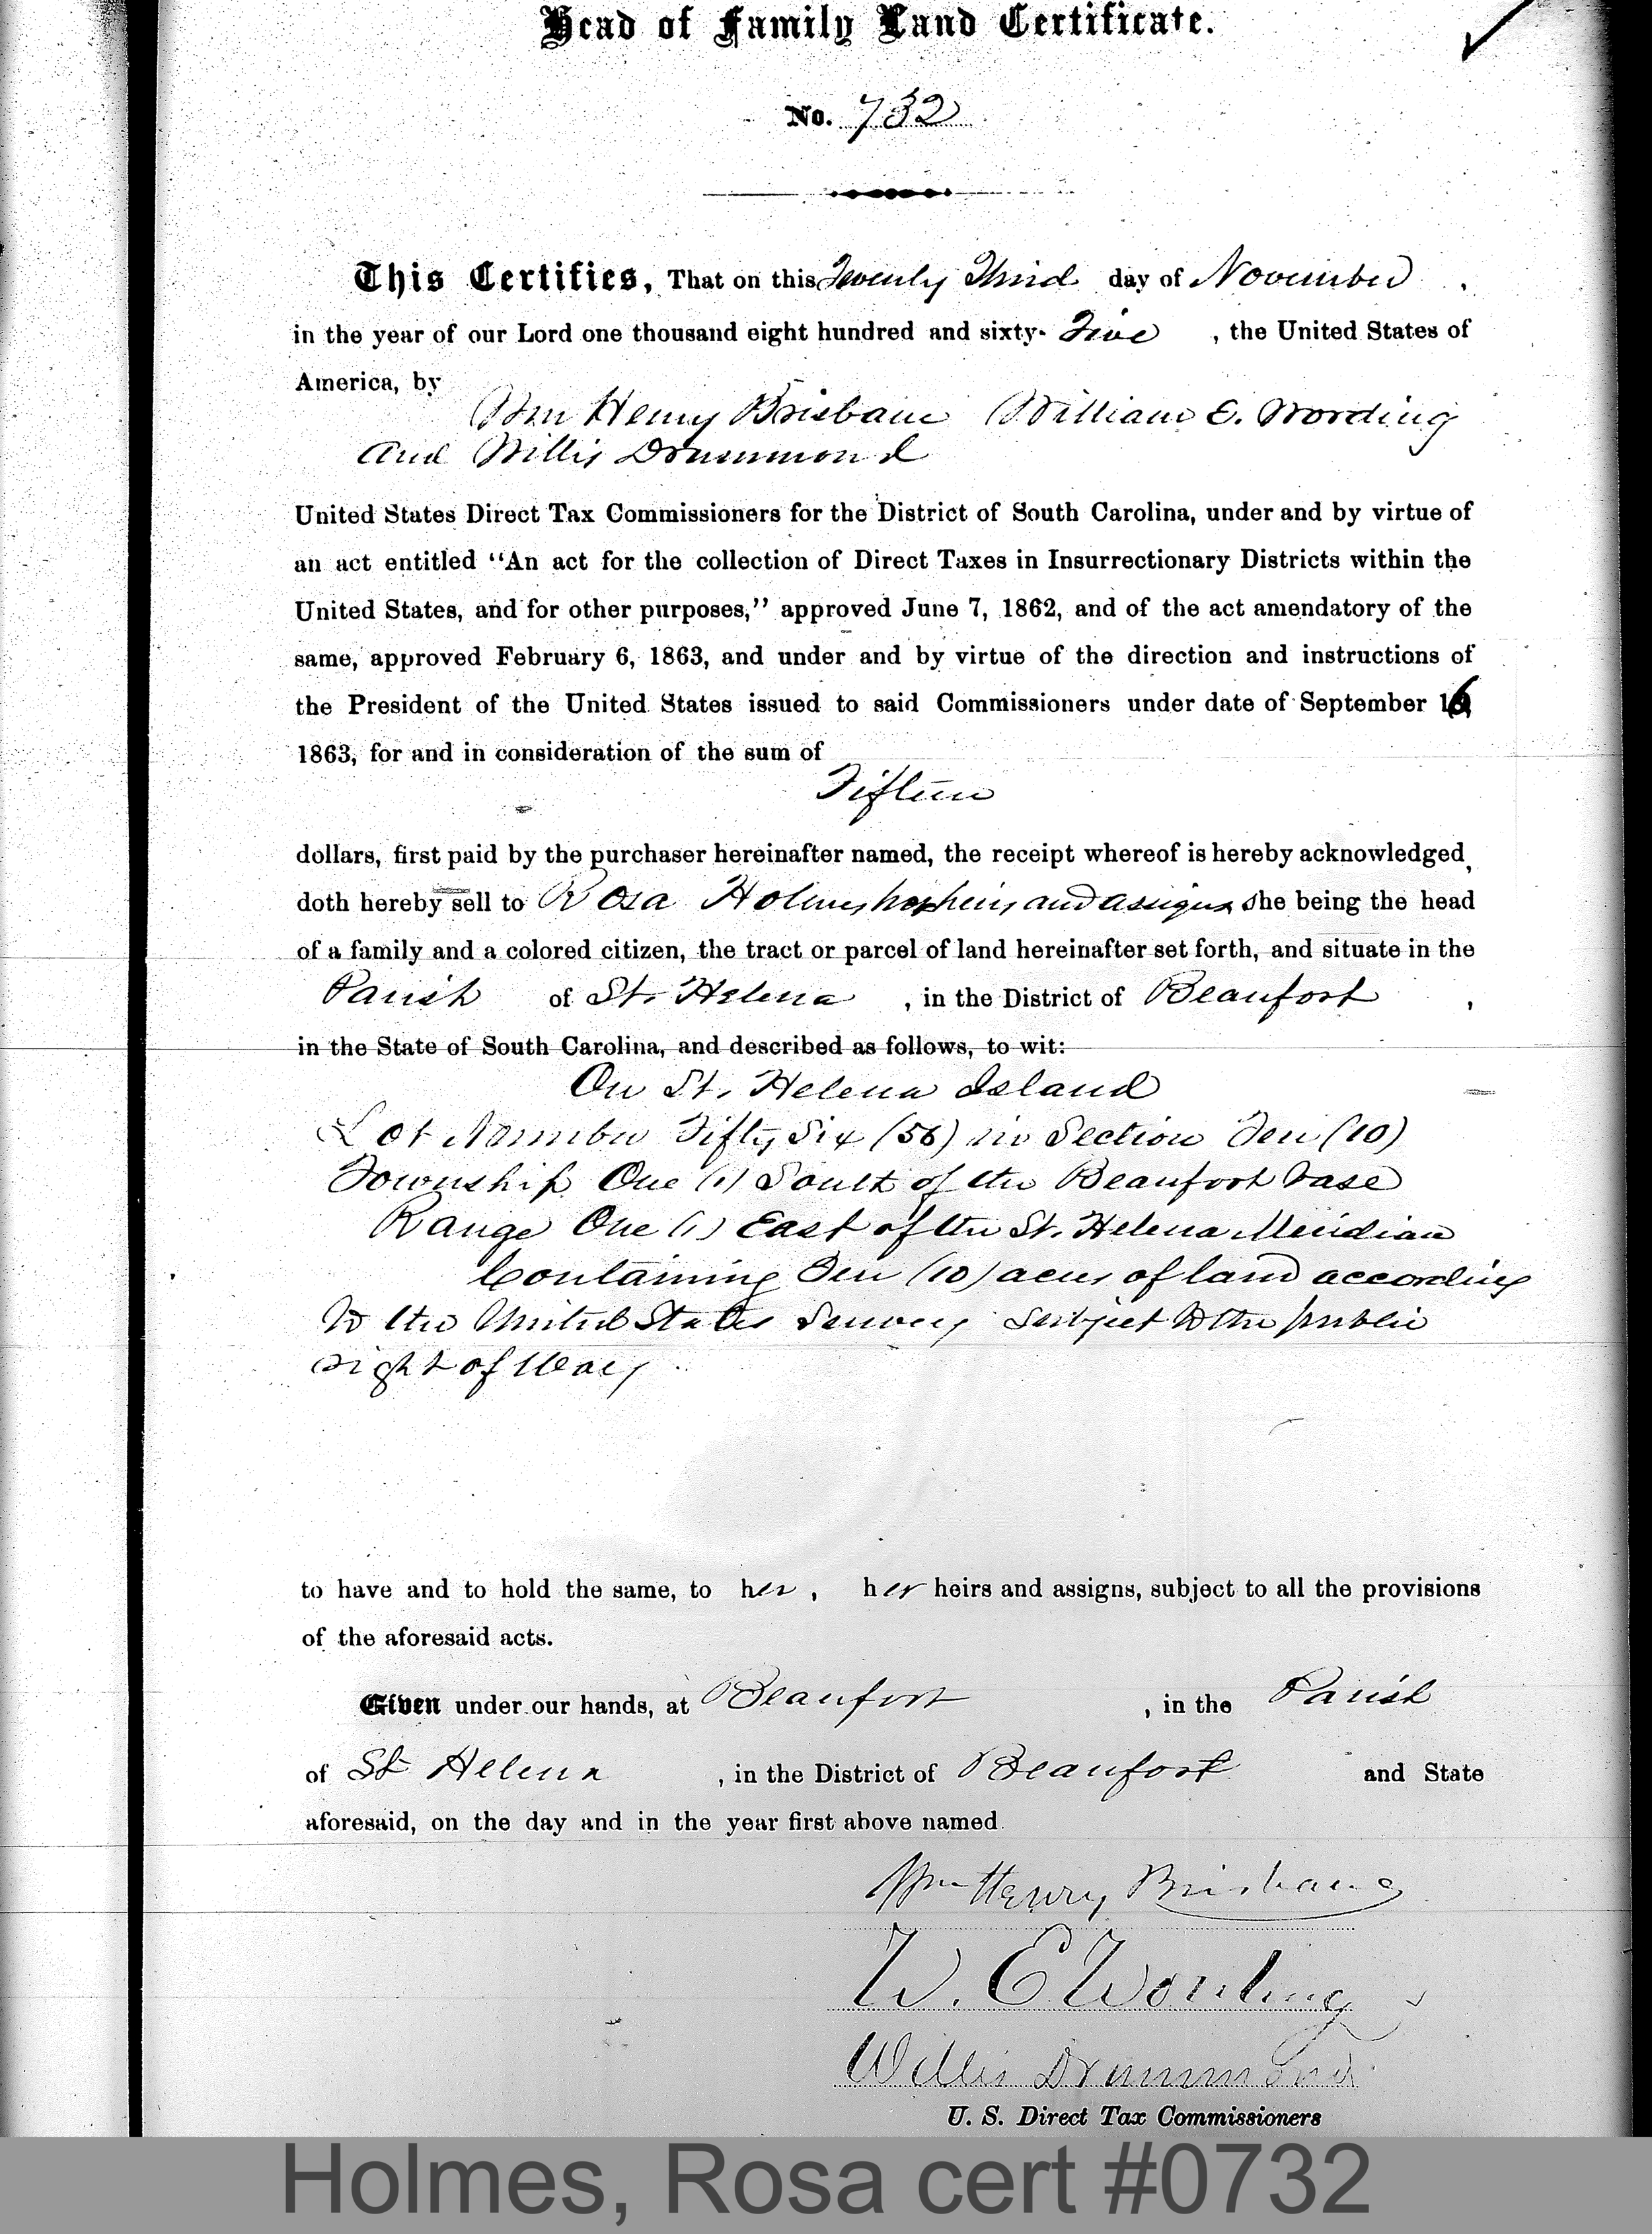 Head of Family Land Certificate.
No. 732
This Certifies, That on this Twenty Third day of November ,
in the year of our Lord one thousand eight hundred and sixty- Five , the United States of
America, by
Wm Henry Brisbane William E. Wording
and Willis Drummond
United States Direct Tax Commissioners for the District of South Carolina, under and by virtue of
an act entitled "An act for the collection of Direct Taxes in Insurrectionary Districts within the
United States, and for other purposes," approved June 7, 1862, and of the act amendatory of the
same, approved February 6, 1863, and under and by virtue of the direction and instructions of
the President of the United States issued to said Commissioners under date of September 16
1863, for and in consideration of the sum of
Fifteen
dollars, first paid by the purchaser hereinafter named, the receipt whereof is hereby acknowledged,
doth hereby sell to Rosa Holmes her heirs and assigns she being the head
of a family and a colored citizen, the tract or parcel of land hereinafter set forth, and situate in the
Parish of St. Helena , in the District of Beaufort ,
in the State of South Carolina, and described as follows, to wit:
On St. Helena Island
Lot Number Fifty Six (56) in Section Ten (10)
Township One (1) South of the Beaufort base
Range One (1) East of the St. Helena Meridian
Containing Ten (10) acres of land according
to the United States Survey Subject to the public
right of Way
to have and to hold the same, to her , her heirs and assigns, subject to all the provisions
of the aforesaid acts.
Given under our hands, at Beaufort , in the Parish
of St Helena , in the District of Beaufort and State
aforesaid, on the day and in the year first above named.
Wm Henry Brisbane
W. E. Wording
Willis Drummond
U. S. Direct Tax Commissioners
Holmes, Rosa cert #0732